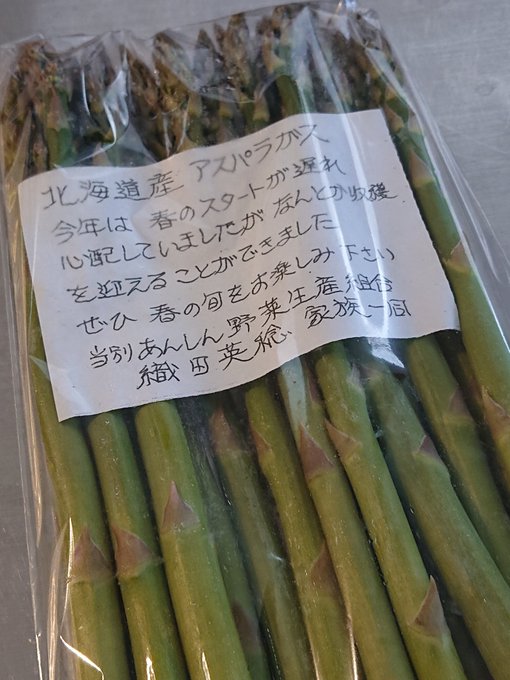 北海道産 アスパラガス
今年は 春のスタートが遅れ
心配していましたが なんとか収穫
を迎えることができました
ぜひ 春の旬をお楽しみ下さい
当別あんしん野菜生産組合
織田英稔 家族一同